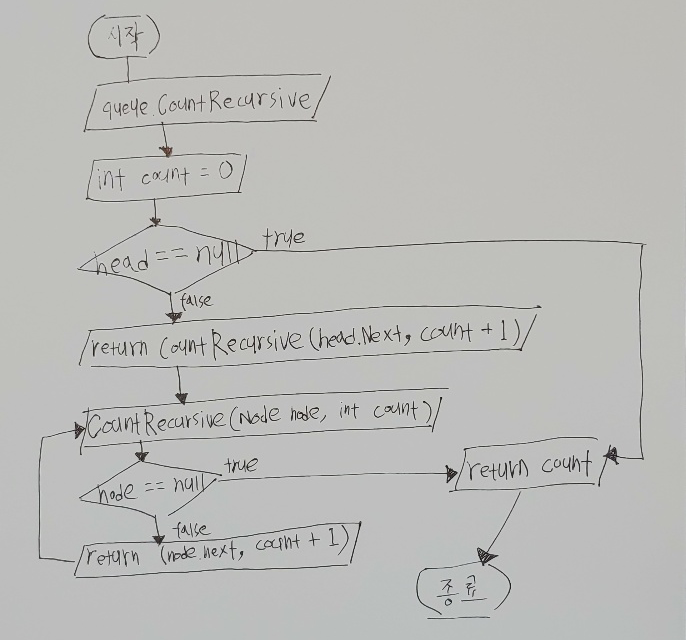 시작
queue.CountRecursive
int count = 0
head == null
true
false
return CountRecursive(head.Next, count + 1)
CountRecursive(Node node, int count)
node == null
true
return count
false
return (node.next, count + 1)
종료